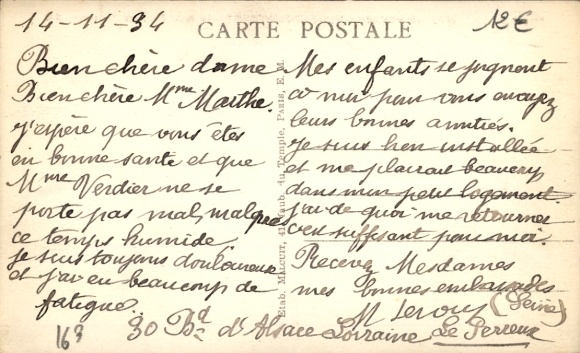 14-11-34
CARTE POSTALE
12€
Bien chère dame
Bien chère Mme Marthe.
j'espère que vous êtes
en bonne santé et que
Mme Verdier ne se
porte pas mal, malgré
ce temps humide.
je suis toujours douloureuse
et j'ai eu beaucoup de
fatigue.
Etab. MALCUIT, 41, Faub. du Temple, PARIS, E. M.
Mes enfants se joignent
à moi pour vous envoyez
leurs bonnes amitiés.
je suis bien installée
et me plairait beaucoup
dans mon petit logement.
j'ai de quoi me retourner
c'est suffisant pour moi.
Recevez Mesdames
mes bonnes embrassades
M Leroux
30 Bd d'Alsace Lorraine Le Perreux
(Seine)
163